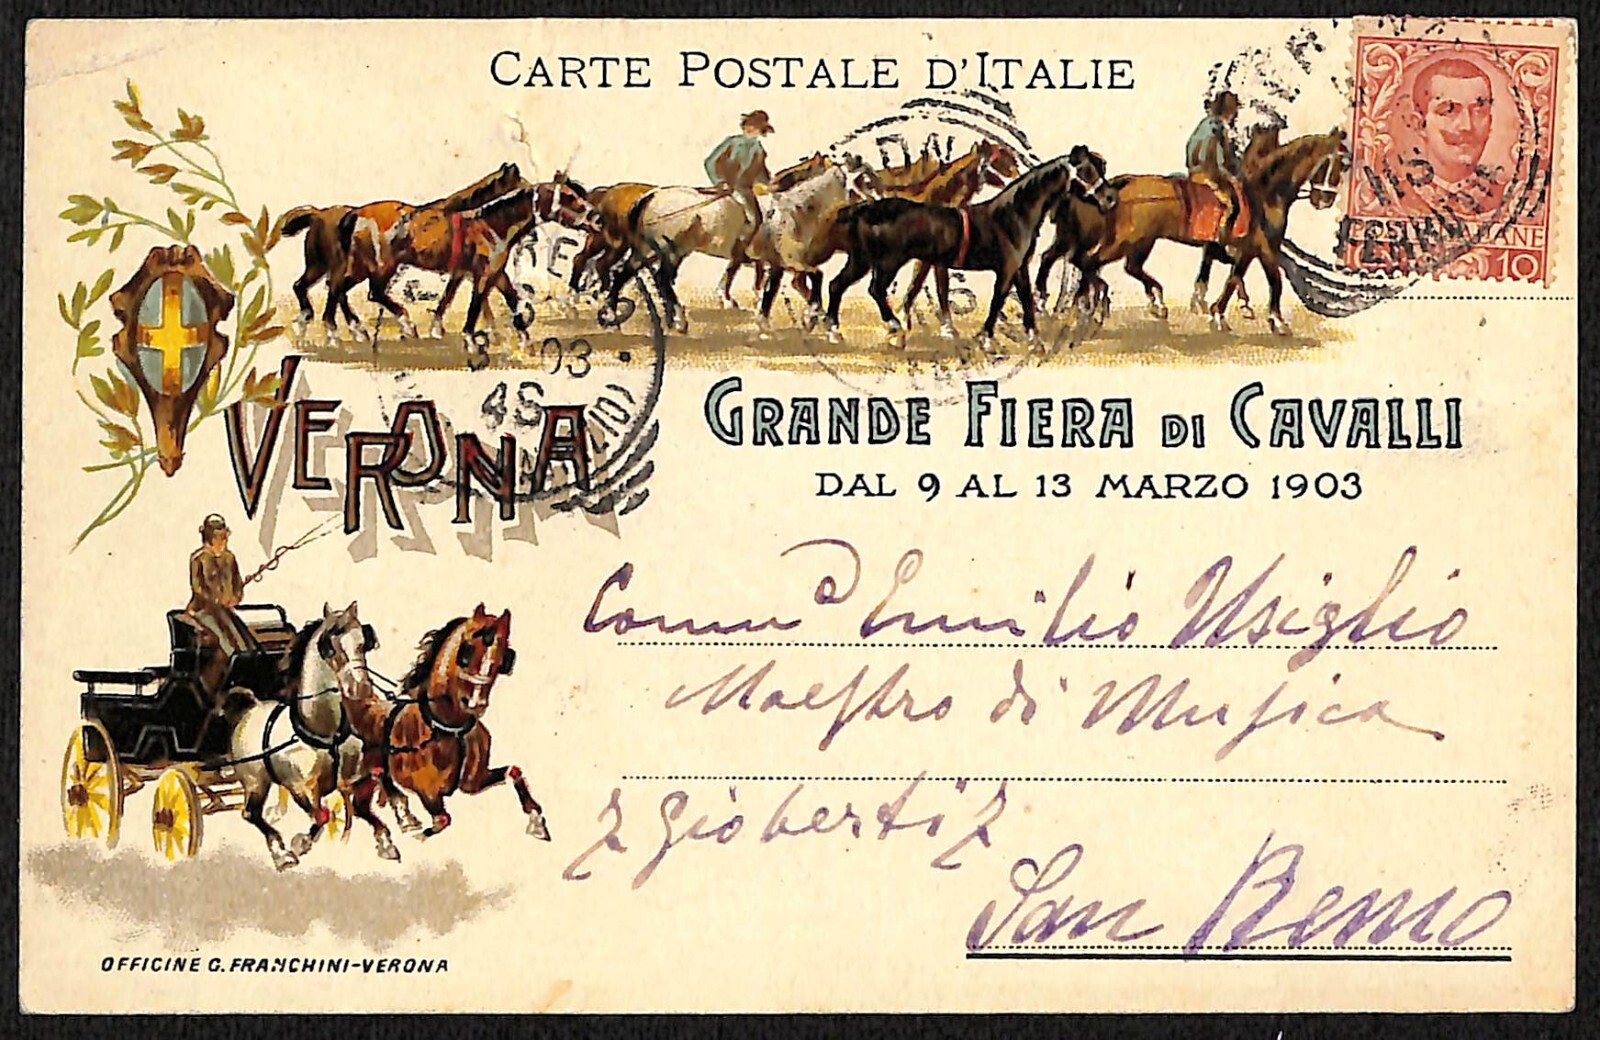 CARTE POSTALE D'ITALIE
POSTE ITALIANE
10
3 03
4S
VERONA
GRANDE FIERA DI CAVALLI
DAL 9 AL 13 MARZO 1903
Emilio Usiglio
Maestro di Musica
Gioberti 2
San Remo
OFFICINE G. FRANCHINI-VERONA